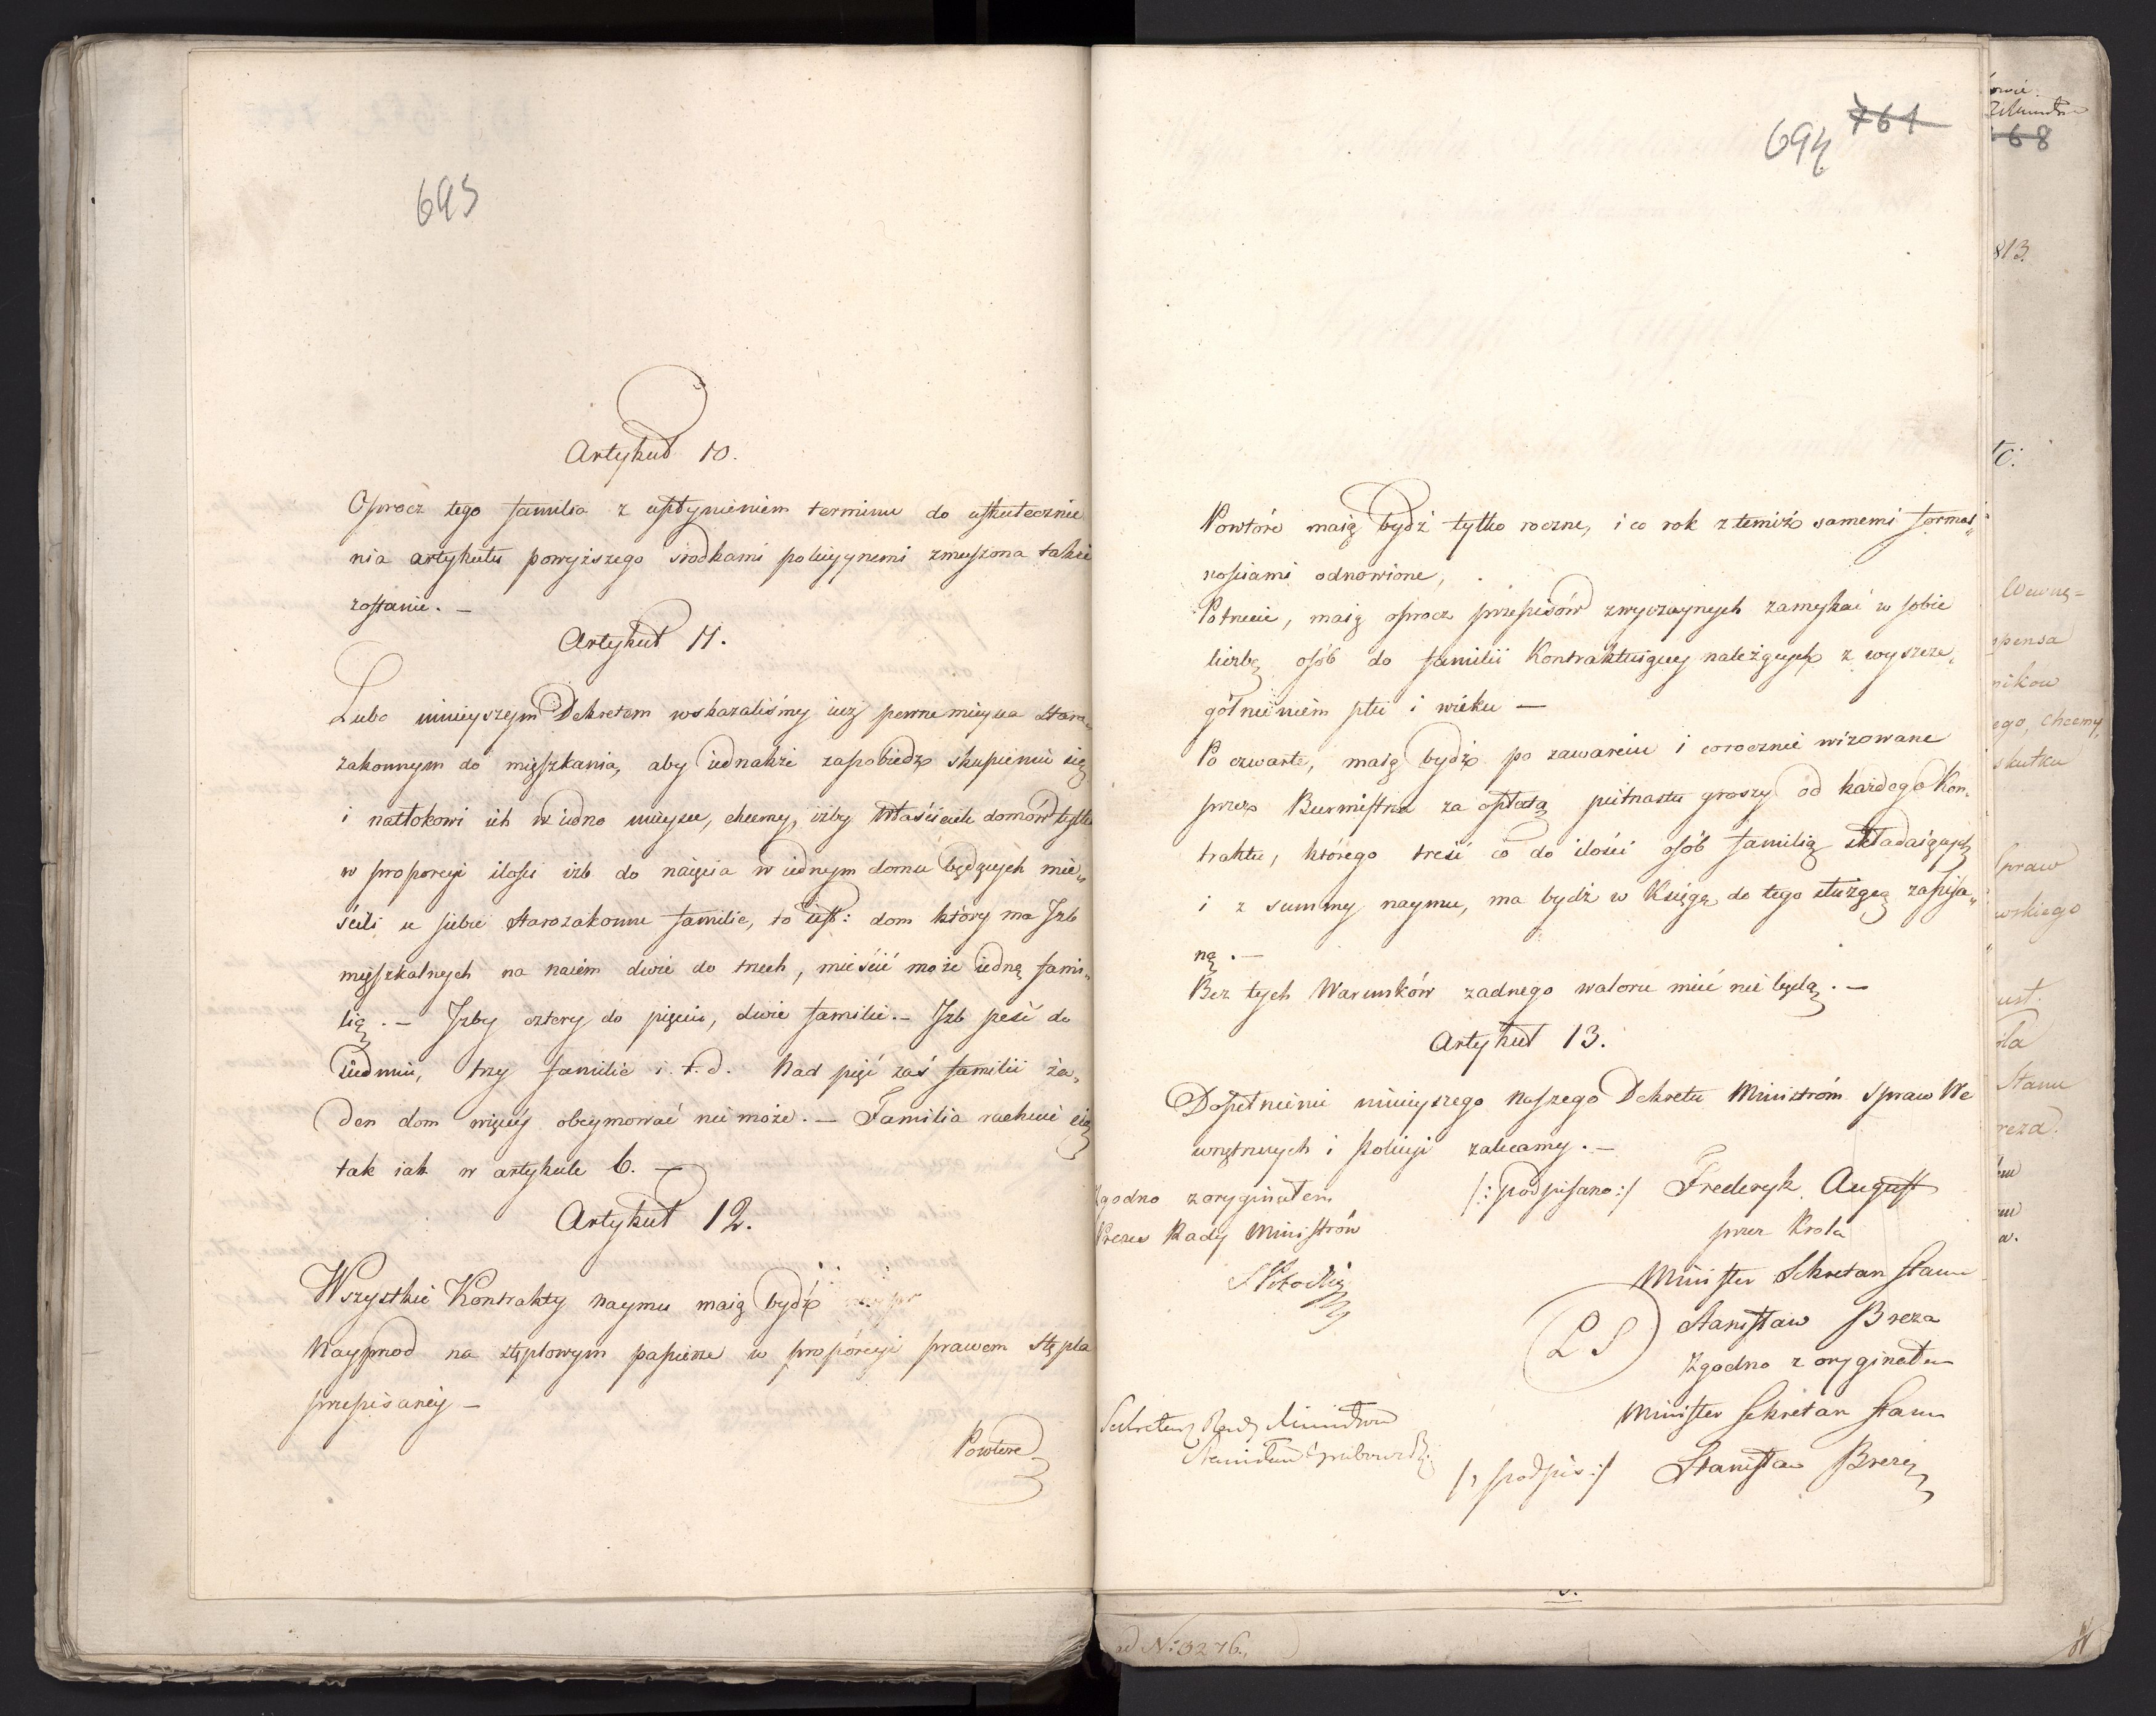 693
Artykuł 10.
Oprocz tego familia z upłynieniem terminu do uskutecznie
nia artykułu powyższego srodkami policyynemi zmuszona takie
zostanie. –
Artykuł 11.
Lubo ninieyszym Dekretem wskazaliśmy iuż pewne mieysca Staro„
zakonnym do mięszkania, aby iednakże zapobiedz skupieniu się
i natłokowi ich w iedno mieysce, chcemy, iżby Właściciele domów tylko
w proporcyi ilości izb do naięcia w iednym domu będących mie„
ścili u siebie Starozakonne familie, to iest: dom który ma Izb
mięszkalnych na naiem dwie do trzech, mieścić może iednę fami„
lią. – Izby cztery do pięciu, dwie familie. – Izb sześć do
siedmiu, trzy familie i. t. d. Nad pięć zaś familii ża„
den dom więcey obeymować nie może. – Familia rachuie się
tak iak w artykule 6. –
Artykuł 12.
Wszystkie Kontrakty naymu maią bydź
Nayprzod na stęplowym papierze w proporcyi prawem stępla
przepisaney –
Powtore
761
694
Powtóre maią bydź tylko roczne, i co rok z temiż samemi formal„
nościami odnowione,
Potrzecie, maią oprocz przepisów zwyczaynych zamykać w sobie
liczbę osób do familii Kontraktuiącey należących z wyszcze„
gólnieniem płci i wieku –
Po czwarte, maią bydź po zawarciu i corocznie wizowane
przez Burmistrza za opłatą piętnastu groszy od każdego Kon„
traktu, którego treść co do ilości osób familią składaiących
i z summy naymu, ma bydź w Księgę do tego służącą zapisa„
ną. –
Bez tych Warunków żadnego waloru mieć nie będą. –
Artykuł 13.
Dopełnienie ninieyszego Naszego Dekretu Ministróm Spraw We
wnętrznych i Policyi zalecamy. –
/: podpisano :/ Frederyk August
Zgodno z oryginałem
Prezes Rady Ministrów
przez Krola
Minister Sekretarz Stanu
L S
Stanisław Breza
Zgodno z oryginałem
Minister Sekretarz Stanu
/: podpis :/ Stanisław Breza
Sekretarz Rady Ministrów
68
813.
Wewnę=
spensa
ników
ego, Chcemy,
skutku
Spraw
wskiego
ust.
Stanu
reza.
ad No: 3276.